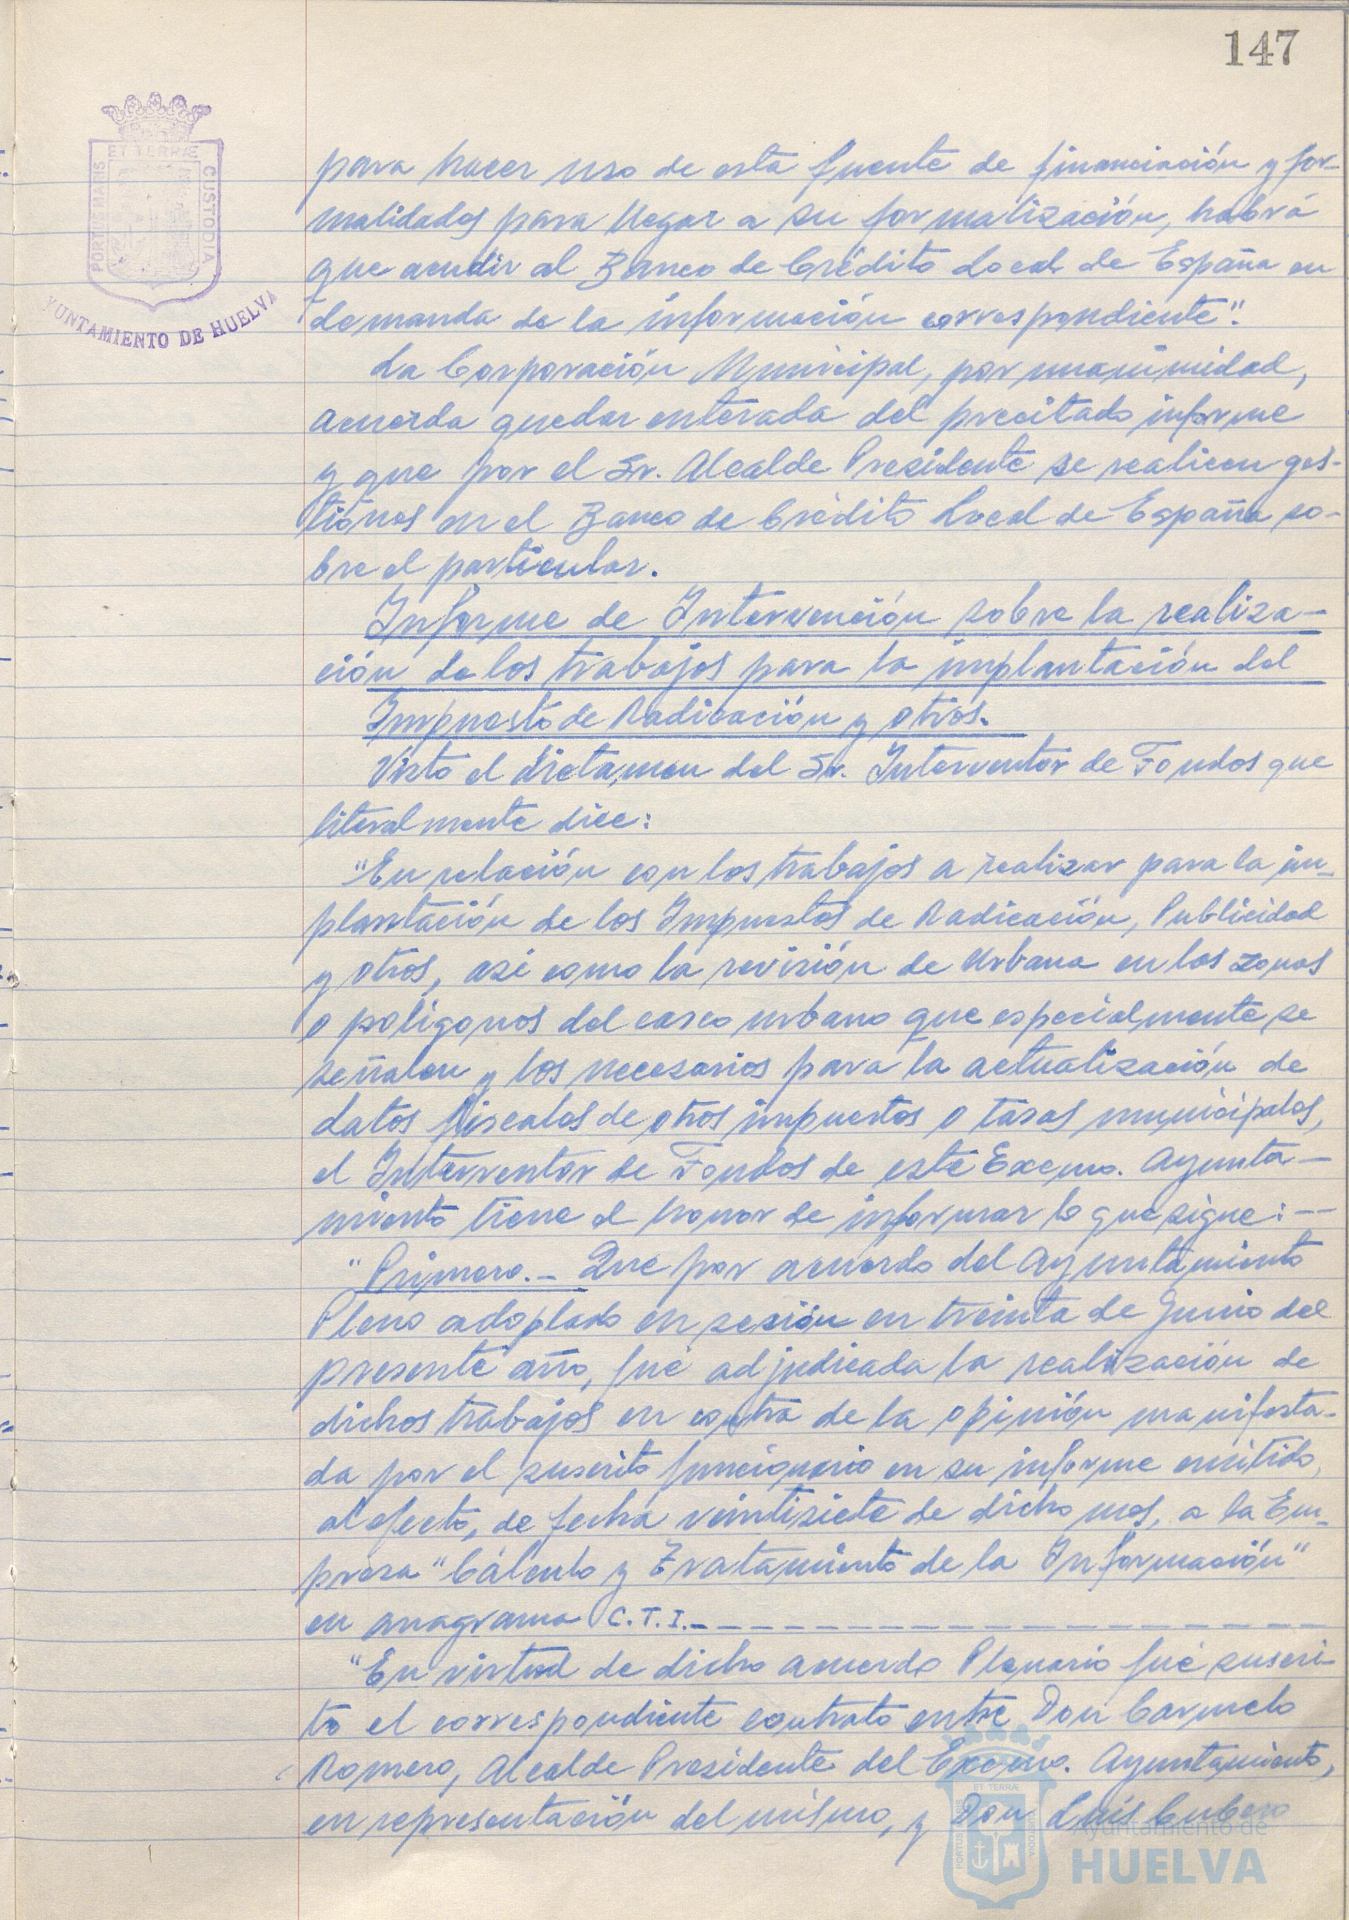 147
ET TERRÆ
PORTUS MARIS
CUSTODIA
AYUNTAMIENTO DE HUELVA
para hacer uso de esta fuente de financiación y for-
malidades para llegar a su formalización, habrá
que acudir al Banco de Crédito Local de España en
demanda de la información correspondiente".
La Corporación Municipal, por unanimidad,
acuerda quedar enterada del precitado informe
y que por el Sr. Alcalde Presidente se realicen ges-
tiones en el Banco de Crédito Local de España so-
bre el particular.
Informe de Intervención sobre la realiza-
ción de los trabajos para la implantación del
Impuesto de Radicación y otros.
Visto el dictamen del Sr. Interventor de Fondos que
literalmente dice:
"En relación con los trabajos a realizar para la im-
plantación de los Impuestos de Radicación, Publicidad
y otros, así como la revisión de Urbana en las zonas
o polígonos del casco urbano que especialmente se
señalen y los necesarios para la actualización de
datos fiscales de otros impuestos o tasas municipales,
el Interventor de Fondos de este Excmo. Ayunta-
miento tiene el honor de informar lo que sigue: --
"Primero.- Que por acuerdo del Ayuntamiento
Pleno adoptado en sesión en treinta de Junio del
presente año, fué adjudicada la realización de
dichos trabajos en contra de la opinión manifesta-
da por el suscrito funcionario en su informe emitido,
al efecto, de fecha veintisiete de dicho mes, a la Em-
presa "Cálculo y Tratamiento de la Información"
en anagrama C.T.I.-------------------
"En virtud de dicho acuerdo Plenario fué suscri-
to el correspondiente contrato entre Don Carmelo
Romero, Alcalde Presidente del Excmo. Ayuntamiento,
en representación del mismo, y Don Luis Cubero
ET TERRÆ
PORTUS MARIS
CUSTODIA
Ayuntamiento de
HUELVA